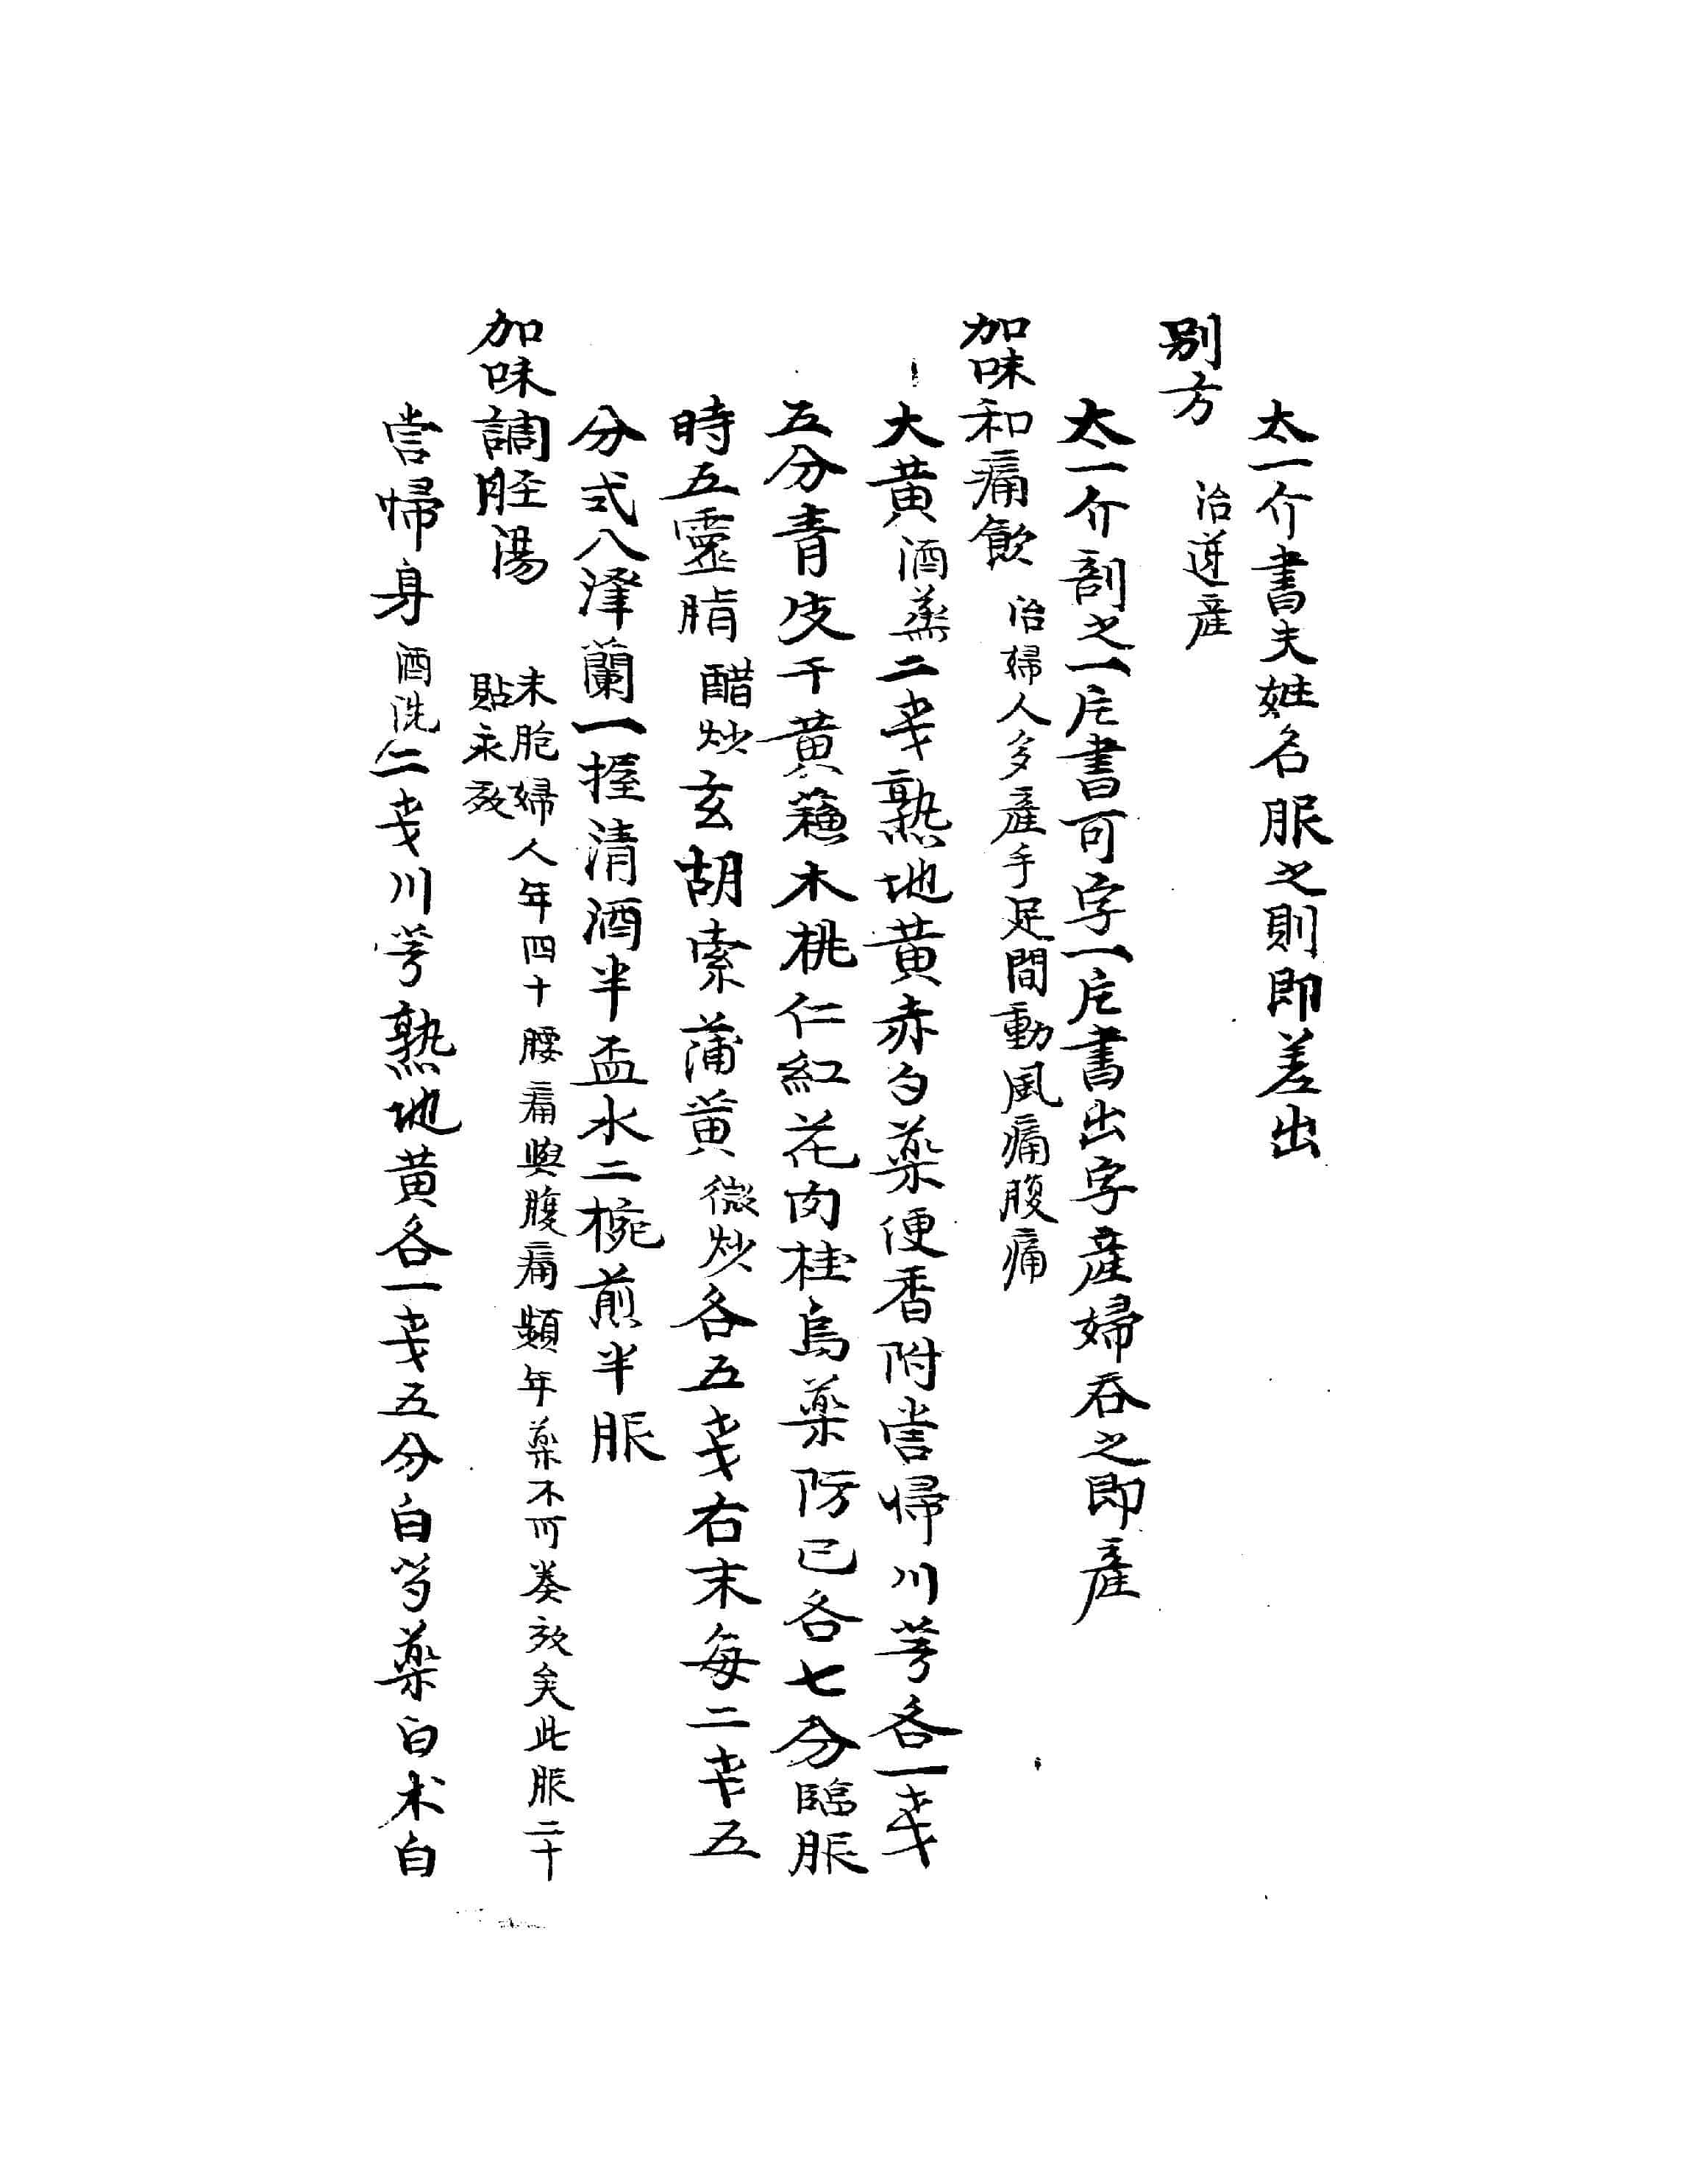 太一介書夫姓名服之則即差出
別方 治逆産
太一介剖之一片書可字一片書出字産婦吞之即産
加味和痛飮 治婦人多産手足間動風痛腹痛
大黃酒蒸二戔熟地黃赤勺藥便香附當帰川芎各一戔
五分靑皮干黃蘓木桃仁紅花肉桂烏藥防已各七分臨服
時五靈脂醋炒玄胡索蒲黃微炒各五戔右末每二戔五
分式入澤蘭一握淸酒半盃水二椀煎半服
加味調胵湯 未胞婦人年四十腰痛與腹痛頻年藥不可奏效矣此服二十
貼永效
當帰身酒洗二戔川芎熟地黃各一戔五分白芍藥白朮白